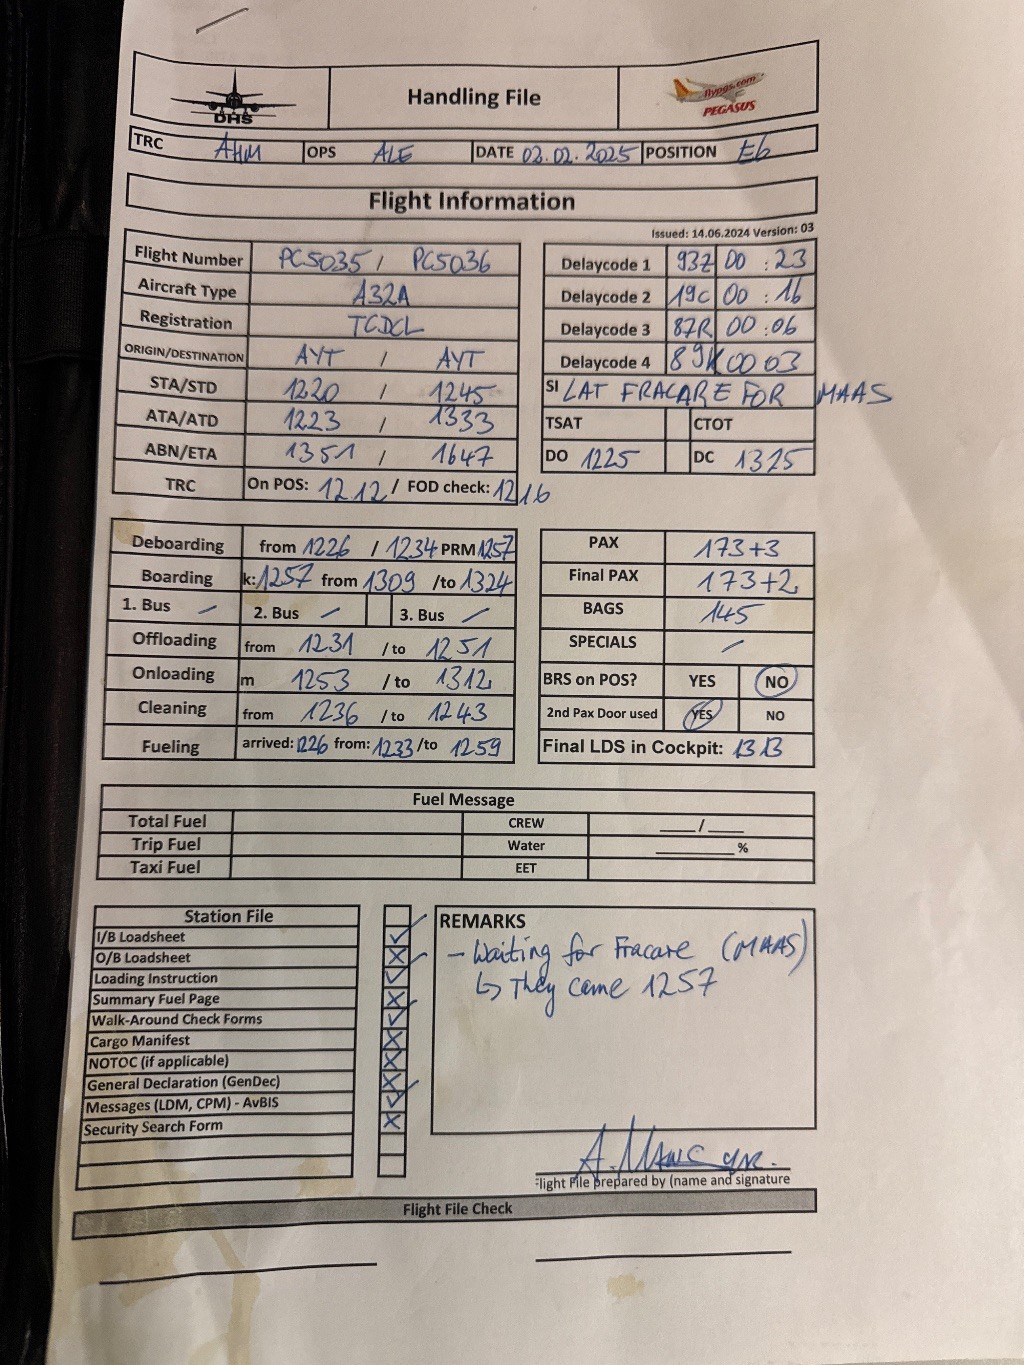 DHS
Handling File
flypgs.com
PEGASUS
TRC AHM OPS ALE DATE 02.02.2025 POSITION E6
Flight Information
Issued: 14.06.2024 Version: 03
Flight Number PC5035 / PC5036
Aircraft Type A32A
Registration TCDCL
ORIGIN/DESTINATION AYT / AYT
STA/STD 1220 / 1245
ATA/ATD 1223 / 1333
ABN/ETA 1351 / 1647
TRC On POS: 1212 / FOD check: 1216
Delaycode 1 93Z 00 : 23
Delaycode 2 19C 00 : 16
Delaycode 3 87R 00 : 06
Delaycode 4 89K 00 03
SI LAT FRACARE FOR MAAS
TSAT CTOT
DO 1225 DC 1325
Deboarding from 1226 / 1234 PRM 1257
Boarding k: 1257 from 1309 /to 1324
1. Bus / 2. Bus / 3. Bus /
Offloading from 1231 / to 1251
Onloading m 1253 / to 1312
Cleaning from 1236 / to 1243
Fueling arrived: 1226 from: 1233 /to 1259
PAX 173+3
Final PAX 173+2
BAGS 145
SPECIALS /
BRS on POS? YES NO
2nd Pax Door used YES NO
Final LDS in Cockpit: 1313
Fuel Message
Total Fuel CREW ___/___
Trip Fuel Water ______ %
Taxi Fuel EET
Station File
I/B Loadsheet ✓
O/B Loadsheet X
Loading Instruction ✓
Summary Fuel Page X
Walk-Around Check Forms ✓
Cargo Manifest X
NOTOC (if applicable) X
General Declaration (GenDec) X
Messages (LDM, CPM) - AvBIS ✓
Security Search Form X
REMARKS
- Waiting for Fracare (MAAS)
↳ They came 1257
flight File prepared by (name and signature
Flight File Check